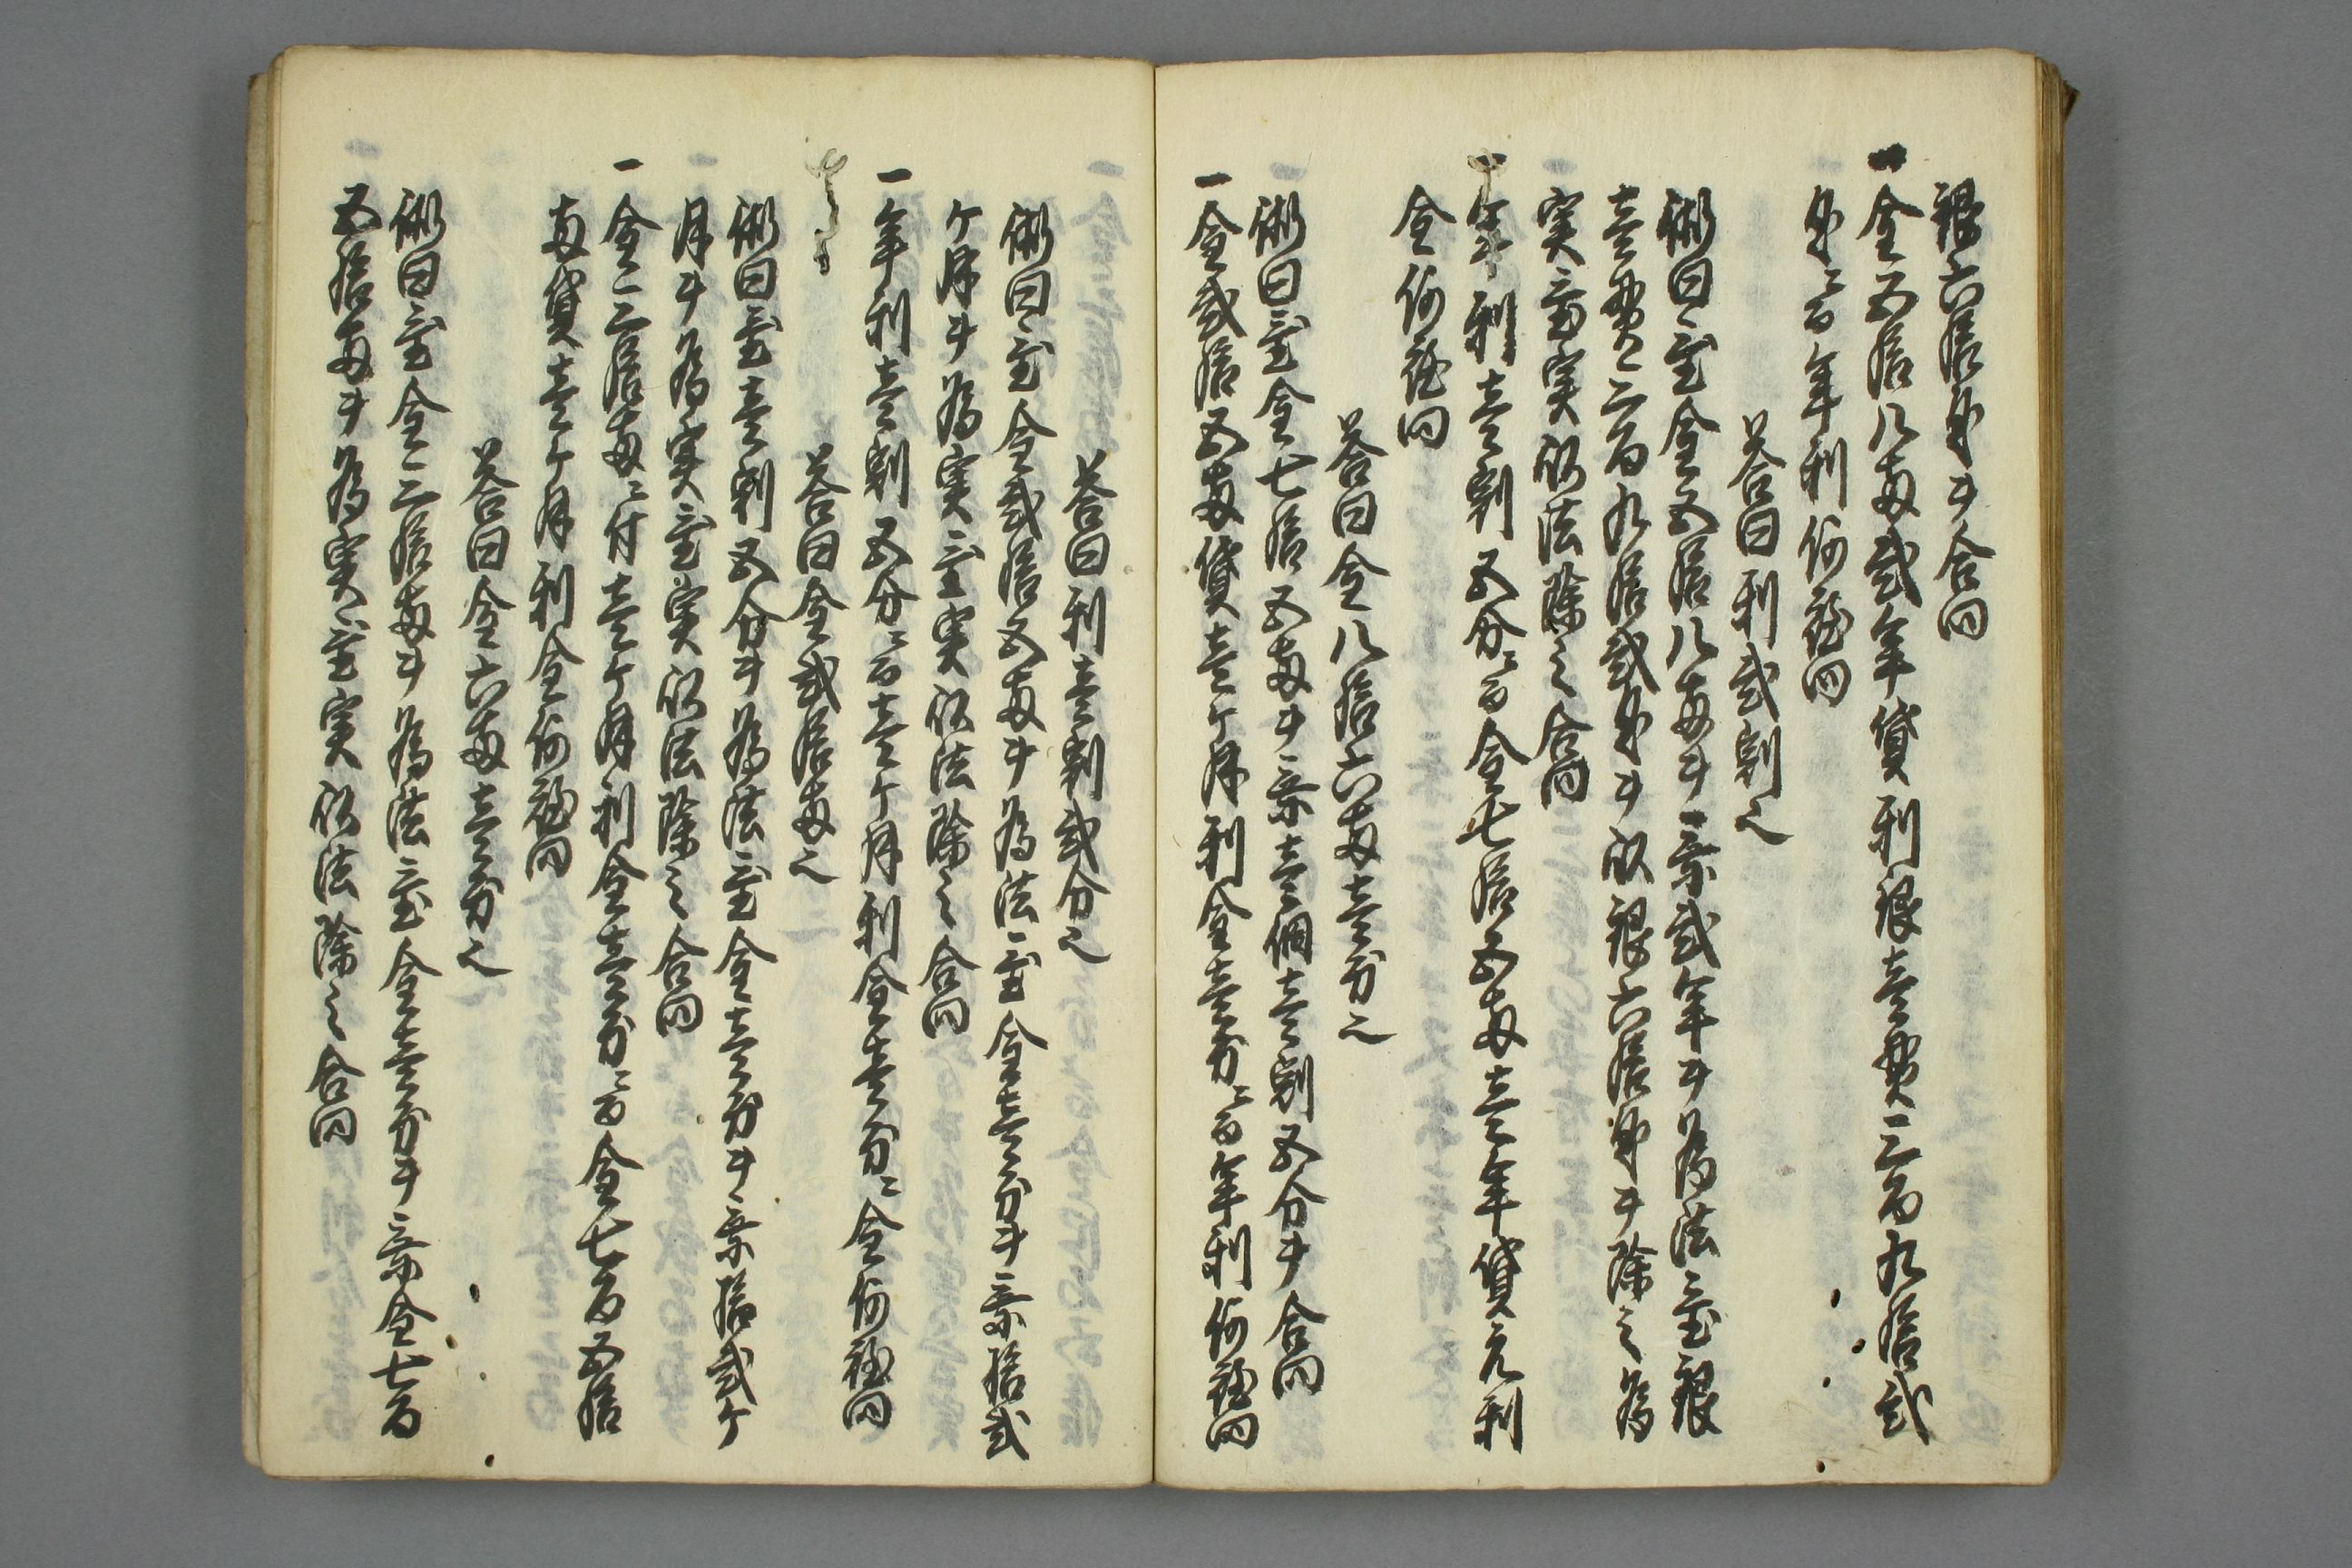 銀六拾匁ヲ合問
一金五拾八両弐年貸利銀壱貫三百九拾弐
匁ニ而年利何程問
答曰利弐割也
術曰置金五拾八両ヲ乗弐年ヲ為法置銀
壱貫三百九拾弐匁ヲ以銀六拾匁ヲ除之為
実置実以法除之合問
一年利壱割五分ニ而金七拾五両壱年貸元利
金何程問
答曰金八拾六両壱分也
術曰置金七拾五両ヲ乗壱個壱割五分ヲ合問
一金弐拾五両貸壱ケ月利金壱分ニ而年利何程問
答曰利壱割弐分也
術曰置金弐拾五両ヲ為法置金壱分ヲ乗拾弐
ケ月ヲ為実置実以法除之合問
一年利壱割五分ニ而壱ケ月利金壱分ニ金何程問
答曰金弐拾両也
術曰置壱割五分ヲ為法置金壱分ヲ乗拾弐ケ
月ヲ為実置実以法除之合問
一金三拾両ニ付壱ケ月利金壱分ニ而金七百五拾
両貸壱ケ月利金何程問
答曰金六両壱分也
術曰置金三拾両ヲ為法置金壱分ヲ乗金七百
五拾両ヲ為実置実以法除之合問